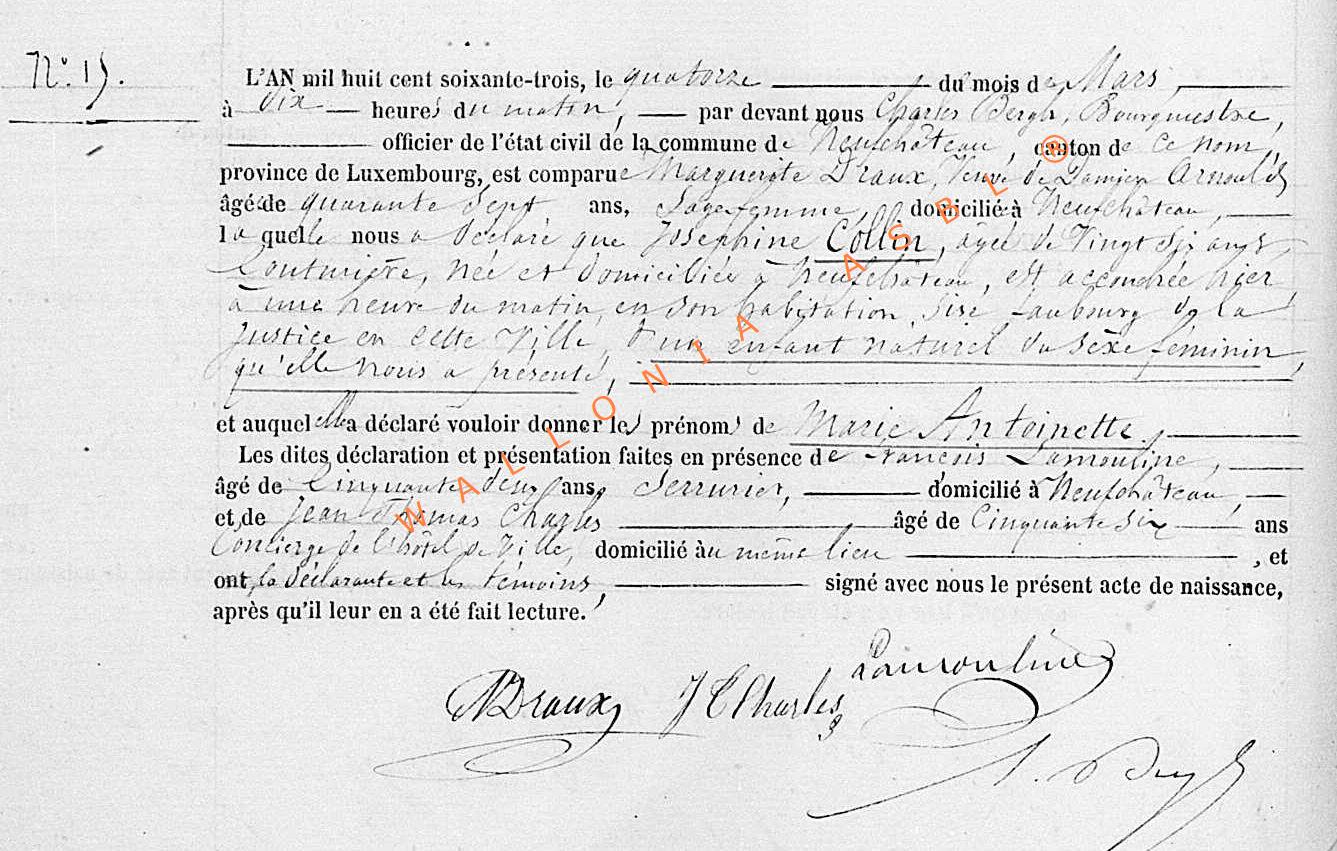 N° 15.
L'AN mil huit cent soixante-trois, le quatorze du mois de Mars,
à dix heures du matin, par devant nous Charles Bergh, Bourgmestre,
officier de l'état civil de la commune de Neufchâteau, canton de ce nom,
province de Luxembourg, est comparue Marguerite Draux, Veuve de Damien Arnould,
âgée de quarante sept ans, Sage femme, domiciliée à Neufchâteau,
laquelle nous a déclaré que Joséphine Collin, agée de Vingt six ans,
Couturière, née et domiciliée à Neufchâteau, est accouchée hier,
à une heure du matin, en son habitation, sise faubourg de la
justice en cette Ville, d'un enfant naturel du sexe féminin,
qu'elle nous a présenté,
et auquel elle a déclaré vouloir donner les prénoms de Marie Antoinette,
Les dites déclaration et présentation faites en présence de François Lamouline,
âgé de Cinquante deux ans, Serrurier, domicilié à Neufchâteau,
et de Jean Thomas Charles âgé de Cinquante six ans
Concierge de l'hôtel de Ville, domicilié au même lieu, et
ont, la déclarante et les témoins, signé avec nous le présent acte de naissance,
après qu'il leur en a été fait lecture.
MDraux JTCharles Lamouline
WALLONIA ASBL ®